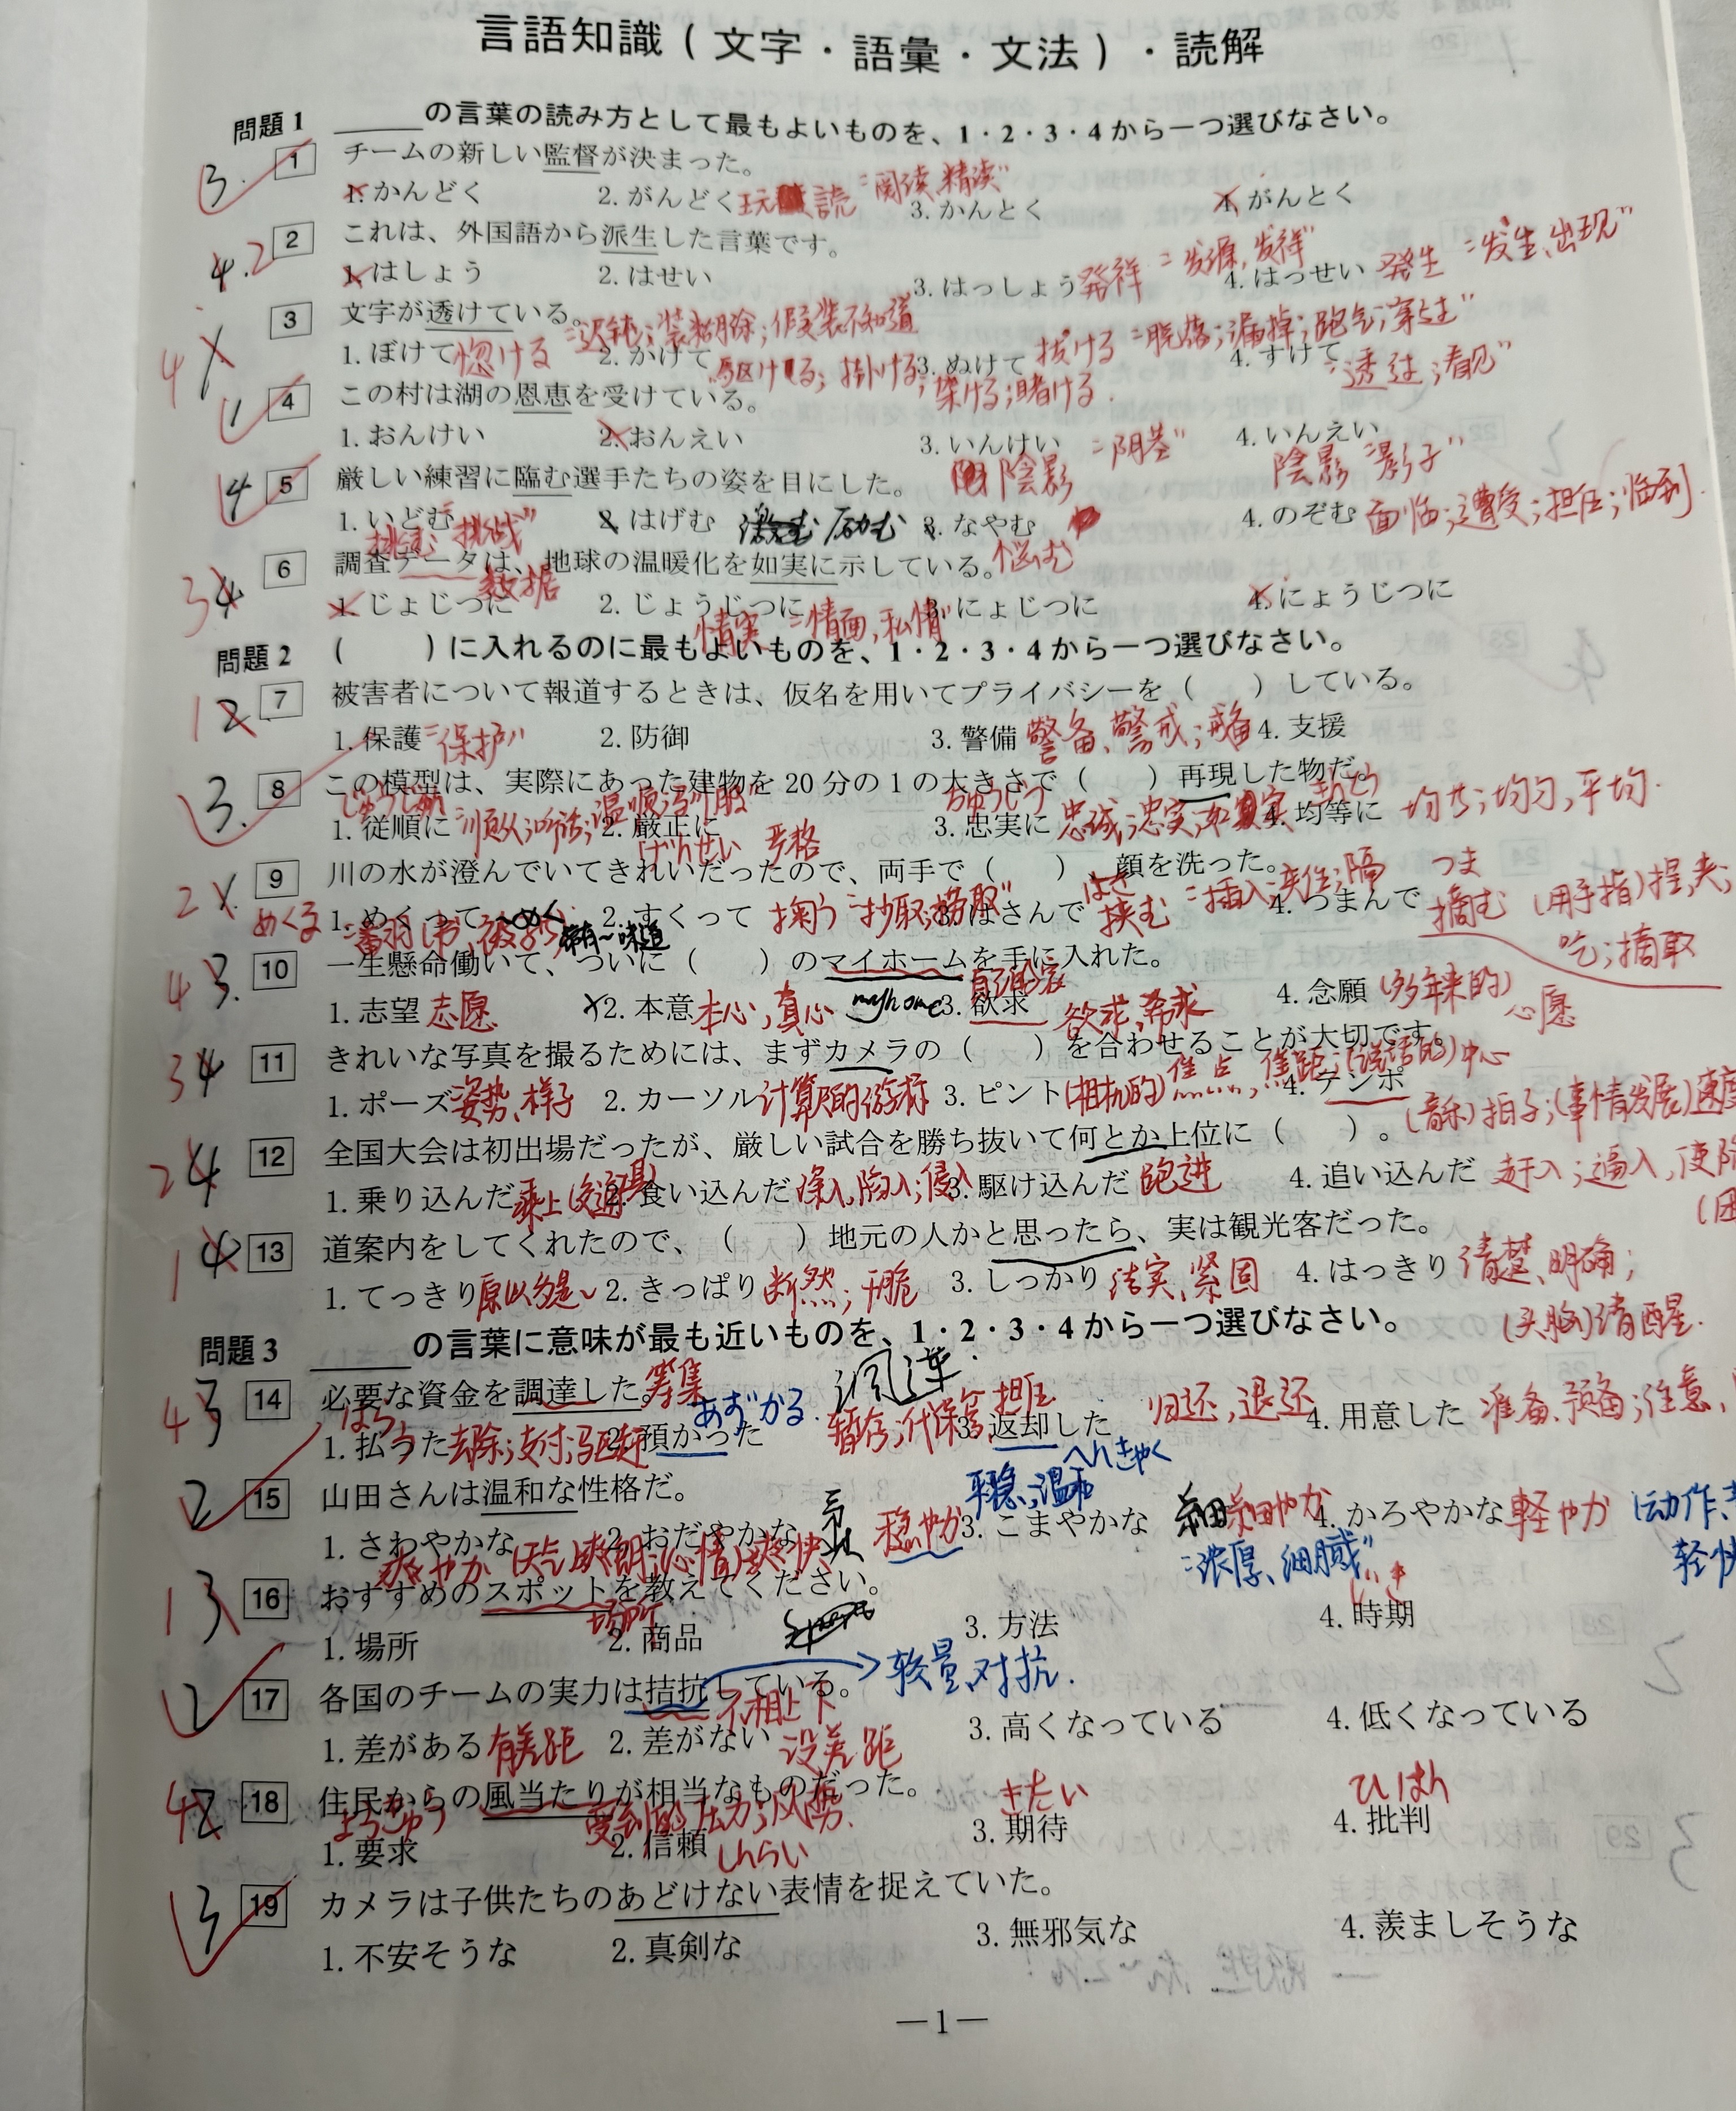 言語知識(文字・語彙・文法)・読解
問題1 ＿＿＿の言葉の読み方として最もよいものを、1・2・3・4から一つ選びなさい。
3. 1 チームの新しい監督が決まった。
1. かんどく 2. がんどく 玩読 =“阅读、精读” 3. かんとく 4. がんとく
4.2 2 これは、外国語から派生した言葉です。
1. はしょう 2. はせい 3. はっしょう 発祥 =“发源,发祥” 4. はっせい 発生 =“发生、出现”
4 3 文字が透けている。
1. ぼけて 惚ける =迟钝;装糊涂;假装不知道 2. かけて 駆ける;掛ける;架ける;賭ける. 3. ぬけて 抜ける =脱落;漏掉;跑气;穿过” 4. すけて =透过;看见”
1 4 この村は湖の恩恵を受けている。
1. おんけい 2. おんえい 3. いんけい 4. いんえい 陰影 “影子”
4 5 厳しい練習に臨む選手たちの姿を目にした。
1. いどむ 挑む “挑战” 2. はげむ 励む 3. なやむ 悩む 4. のぞむ 面临;遭受;担任;临到
34 6 調査データは、地球の温暖化を如実に示している。
数据
1. じょじつに 2. じょうじつに 情実 =“情面,私情” 3. にょじつに 4. にょうじつに
問題2 (　　)に入れるのに最もよいものを、1・2・3・4から一つ選びなさい。
12 7 被害者について報道するときは、仮名を用いてプライバシーを(　　)している。
1. 保護 =“保护” 2. 防御 3. 警備 警备、警戒;戒备 4. 支援
3. 8 この模型は、実際にあった建物を20分の1の大きさで(　　)再現した物だ。
1. 従順に 顺从;听话;温顺 2. 厳正に げんせい 严格 3. 忠実に ちゅうじつ 忠诚;忠实;如实 4. 均等に 均等;均匀,平均.
2 9 川の水が澄んでいてきれいだったので、両手で(　　)、顔を洗った。
1. めくって めくる 2. すくって 掬う 抄取,捞取” 3. はさんで 挟む =插入;夹住;隔 4. つまんで 摘む (用手指)捏,夹;吃;摘取
43. 10 一生懸命働いて、ついに(　　)のマイホームを手に入れた。
1. 志望 志愿 2. 本意 本心,真心 my home 3. 欲求 欲求,希求 4. 念願 (多年来的)心愿
34 11 きれいな写真を撮るためには、まずカメラの(　　)を合わせることが大切です。
1. ポーズ 姿势、样子 2. カーソル 计算机的游标 3. ピント (相机的)焦点,焦距;(说话的)中心 4. テンポ (音乐)拍子;(事情发展)速度
24 12 全国大会は初出場だったが、厳しい試合を勝ち抜いて何とか上位に(　　)。
1. 乗り込んだ 2. 食い込んだ 3. 駆け込んだ 跑进 4. 追い込んだ 赶入;逼入,使陷
14 13 道案内をしてくれたので、(　　)地元の人かと思ったら、実は観光客だった。
1. てっきり 原以为是~ 2. きっぱり 断然;干脆 3. しっかり 结实、紧固 4. はっきり 清楚、明确;
(头脑)清醒.
問題3 ＿＿＿の言葉に意味が最も近いものを、1・2・3・4から一つ選びなさい。
43 14 必要な資金を調達した。筹集 调达.
1. 払った はらう 去除;支付;驱赶 2. 預かった あずかる. 暂存;代保管,担任 3. 返却した へんきゃく 归还,退还 4. 用意した 准备、预备;注意,
2 15 山田さんは温和な性格だ。
1. さわやかな 爽やか (天气)爽朗;(心情)爽快 2. おだやかな 穏やか 平稳;温和 3. こまやかな 細やか =浓厚、细腻” 4. かろやかな 軽やか (动作、
轻快
13 16 おすすめのスポットを教えてください。
1. 場所 2. 商品 3. 方法 4. 時期 じき
2 17 各国のチームの実力は拮抗している。 较量,对抗.
不相上下
1. 差がある 有差距 2. 差がない 没差距 3. 高くなっている 4. 低くなっている
42 18 住民からの風当たりが相当なものだった。
受到的压力;风势.
1. 要求 ようきゅう 2. 信頼 しんらい 3. 期待 きたい 4. 批判 ひはん
3 19 カメラは子供たちのあどけない表情を捉えていた。
1. 不安そうな 2. 真剣な 3. 無邪気な 4. 羨ましそうな
—1—